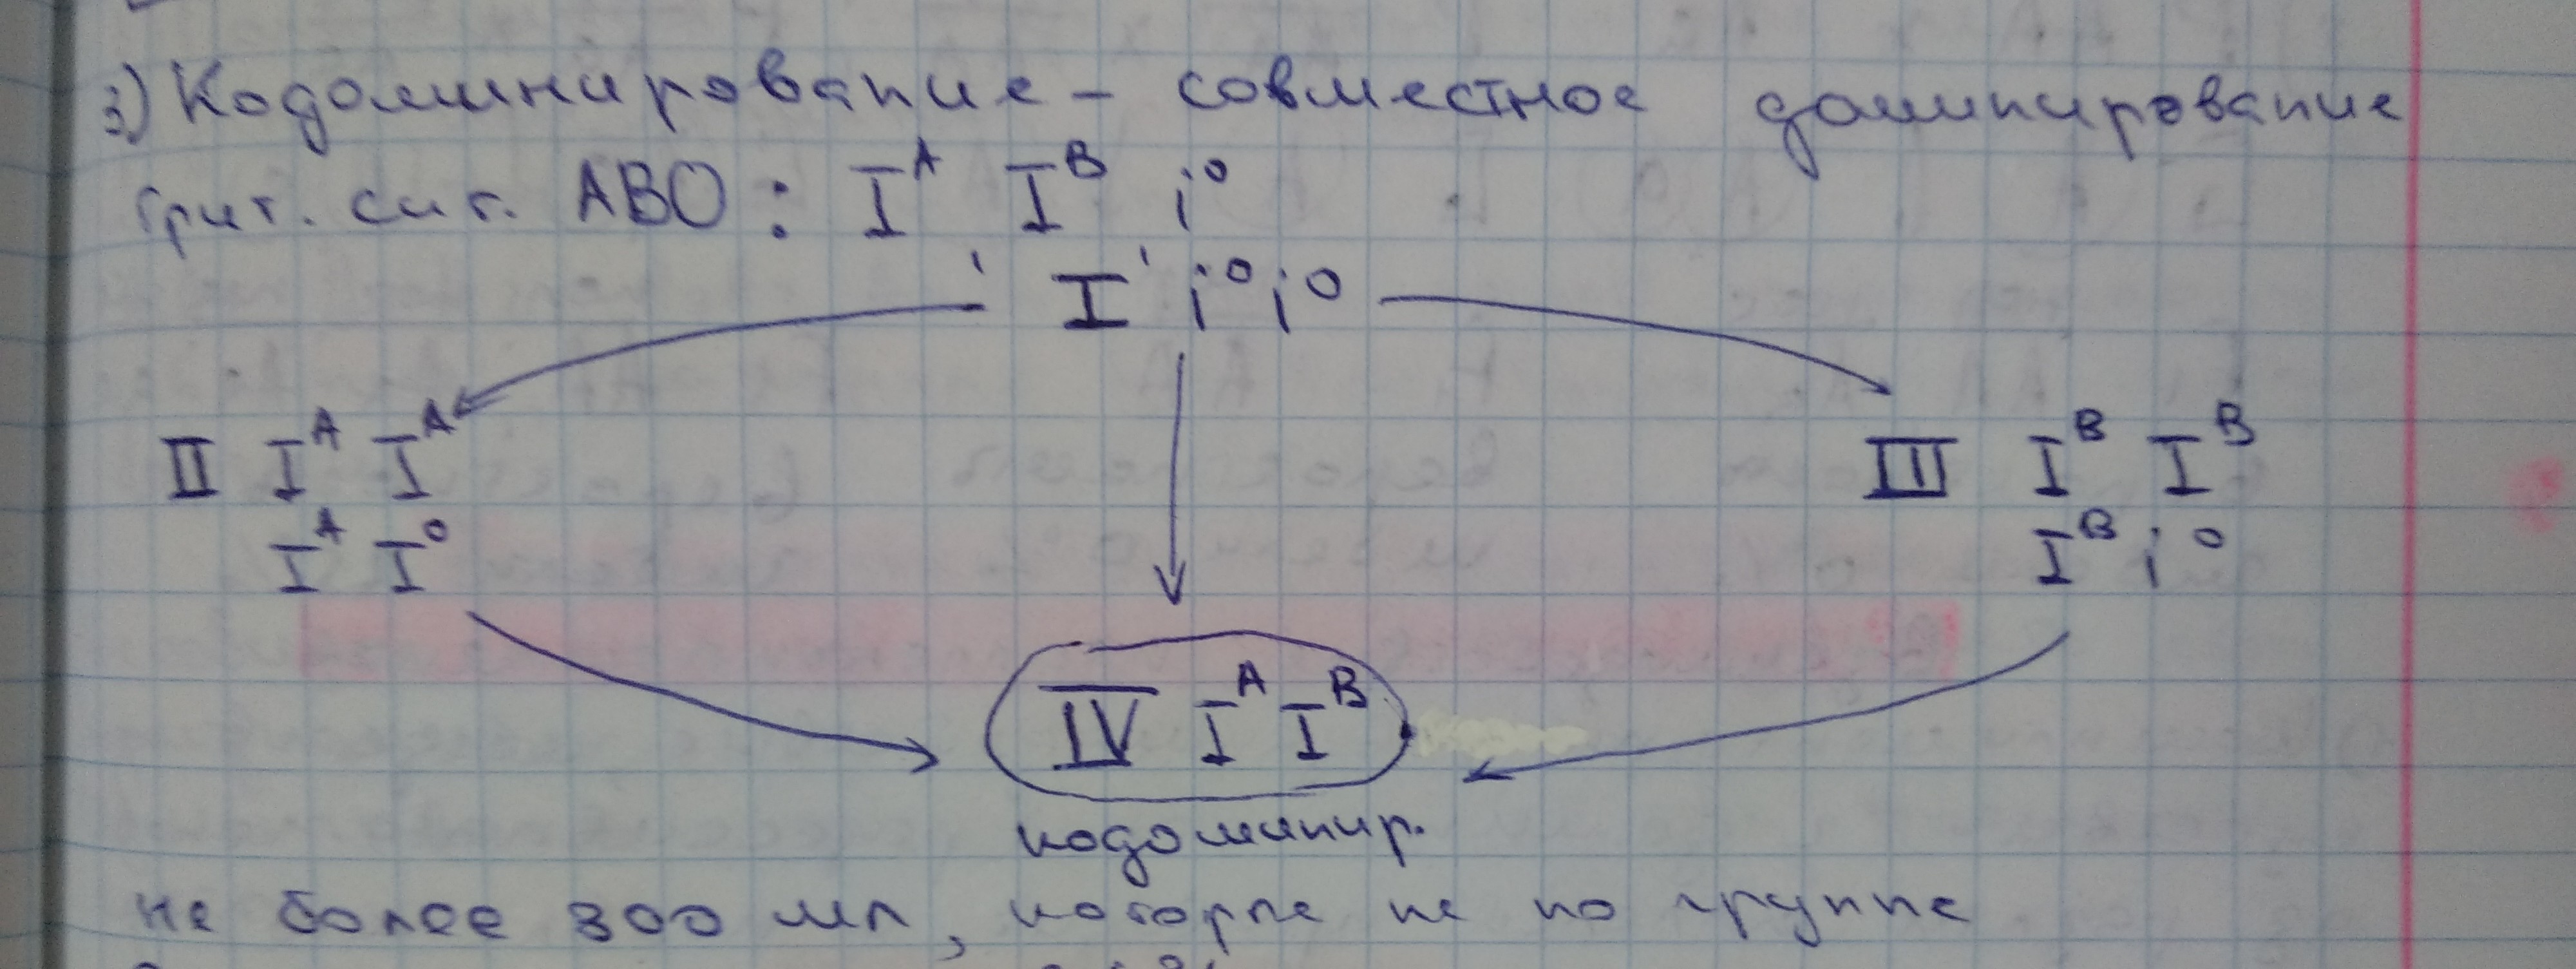 3) Кодоминирование – совместное доминирование
грит. сит. ABO : I^A I^B i^o
' I ' i^o i^o
II I^A I^A III I^B I^B
I^A I^o I^B i^o
IV I^A I^B
кодоминир.
не более 300 мл, которые не по группе